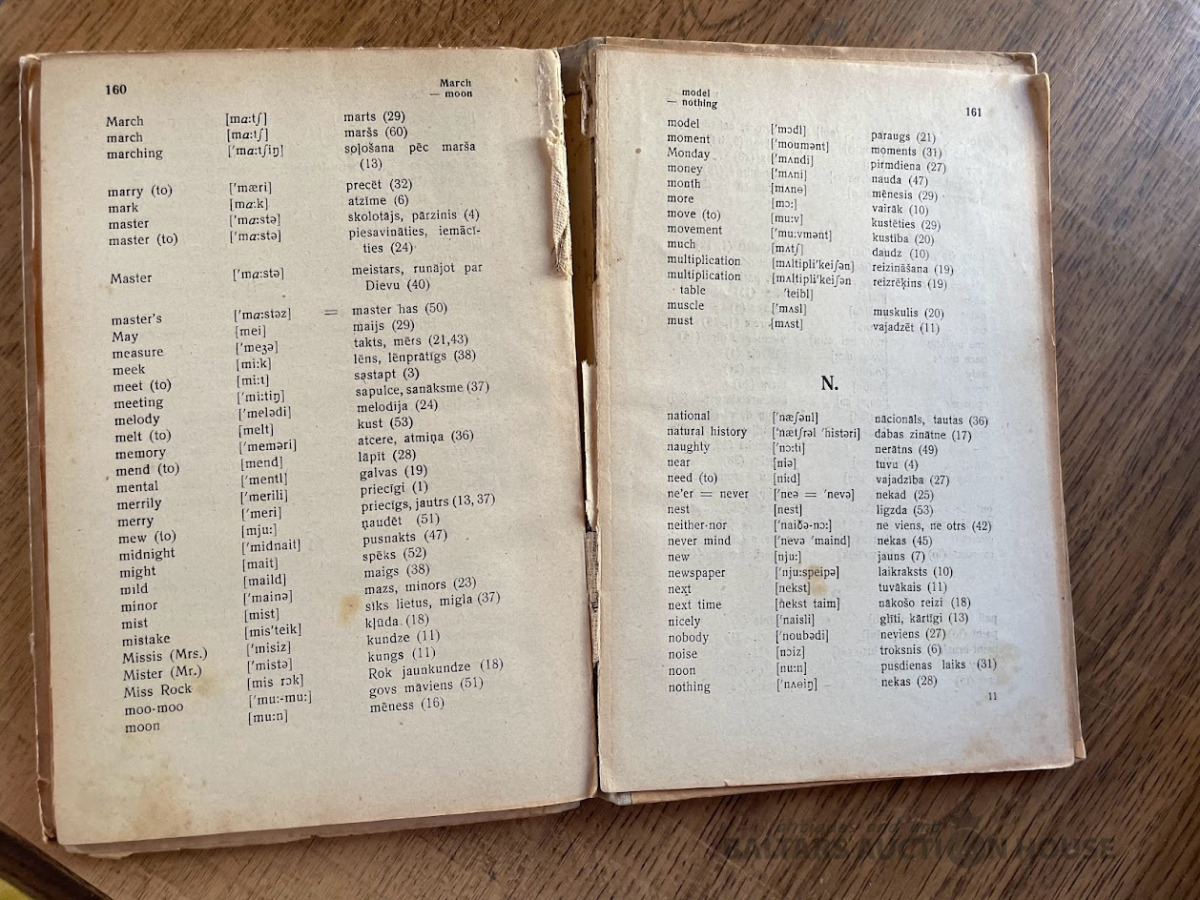 160
March
— moon
March [mɑ:tʃ] marts (29)
march [mɑ:tʃ] maršs (60)
marching ['mɑ:tʃiŋ] soļošana pēc marša
(13)
marry (to) ['mæri] precēt (32)
mark [mɑ:k] atzīme (6)
master ['mɑ:stə] skolotājs, pārzinis (4)
master (to) ['mɑ:stə] piesavināties, iemācī-
ties (24)
Master ['mɑ:stə] meistars, runājot par
Dievu (40)
master's ['mɑ:stəz] = master has (50)
May [mei] maijs (29)
measure ['meʒə] takts, mērs (21,43)
meek [mi:k] lēns, lēnprātīgs (38)
meet (to) [mi:t] sastapt (3)
meeting ['mi:tiŋ] sapulce, sanāksme (37)
melody ['melədi] melodija (24)
melt (to) [melt] kust (53)
memory ['meməri] atcere, atmiņa (36)
mend (to) [mend] lāpīt (28)
mental ['mentl] galvas (19)
merrily ['merili] priecīgi (1)
merry ['meri] priecīgs, jautrs (13, 37)
mew (to) [mju:] ņaudēt (51)
midnight ['midnait] pusnakts (47)
might [mait] spēks (52)
mild [maild] maigs (38)
minor ['mainə] mazs, minors (23)
mist [mist] sīks lietus, migla (37)
mistake [mis'teik] kļūda (18)
Missis (Mrs.) ['misiz] kundze (11)
Mister (Mr.) ['mistə] kungs (11)
Miss Rock [mis rɔk] Rok jaunkundze (18)
moo-moo ['mu:-mu:] govs māviens (51)
moon [mu:n] mēness (16)
model
— nothing
161
model ['mɔdl] paraugs (21)
moment ['moumənt] moments (31)
Monday ['mʌndi] pirmdiena (27)
money ['mʌni] nauda (47)
month [mʌnɵ] mēnesis (29)
more [mɔ:] vairāk (10)
move (to) [mu:v] kustēties (29)
movement ['mu:vmənt] kustība (20)
much [mʌtʃ] daudz (10)
multiplication [mʌltipli'keiʃən] reizināšana (19)
multiplication [mʌltipli'keiʃən reizrēķins (19)
table 'teibl]
muscle ['mʌsl] muskulis (20)
must [mʌst] vajadzēt (11)
N.
national ['næʃənl] nācionāls, tautas (36)
natural history ['nætʃrəl 'histəri] dabas zinātne (17)
naughty ['nɔ:ti] nerātns (49)
near [niə] tuvu (4)
need (to) [ni:d] vajadzība (27)
ne'er = never ['neə = 'nevə] nekad (25)
nest [nest] ligzda (53)
neither-nor ['naiðə-nɔ:] ne viens, ne otrs (42)
never mind ['nevə 'maind] nekas (45)
new [nju:] jauns (7)
newspaper ['nju:speipə] laikraksts (10)
next [nekst] tuvākais (11)
next time [nekst taim] nākošo reizi (18)
nicely ['naisli] glīti, kārtīgi (13)
nobody ['noubədi] neviens (27)
noise [nɔiz] troksnis (6)
noon [nu:n] pusdienas laiks (31)
nothing ['nʌɵiŋ] nekas (28)
11
BALTARS AUCTION HOUSE